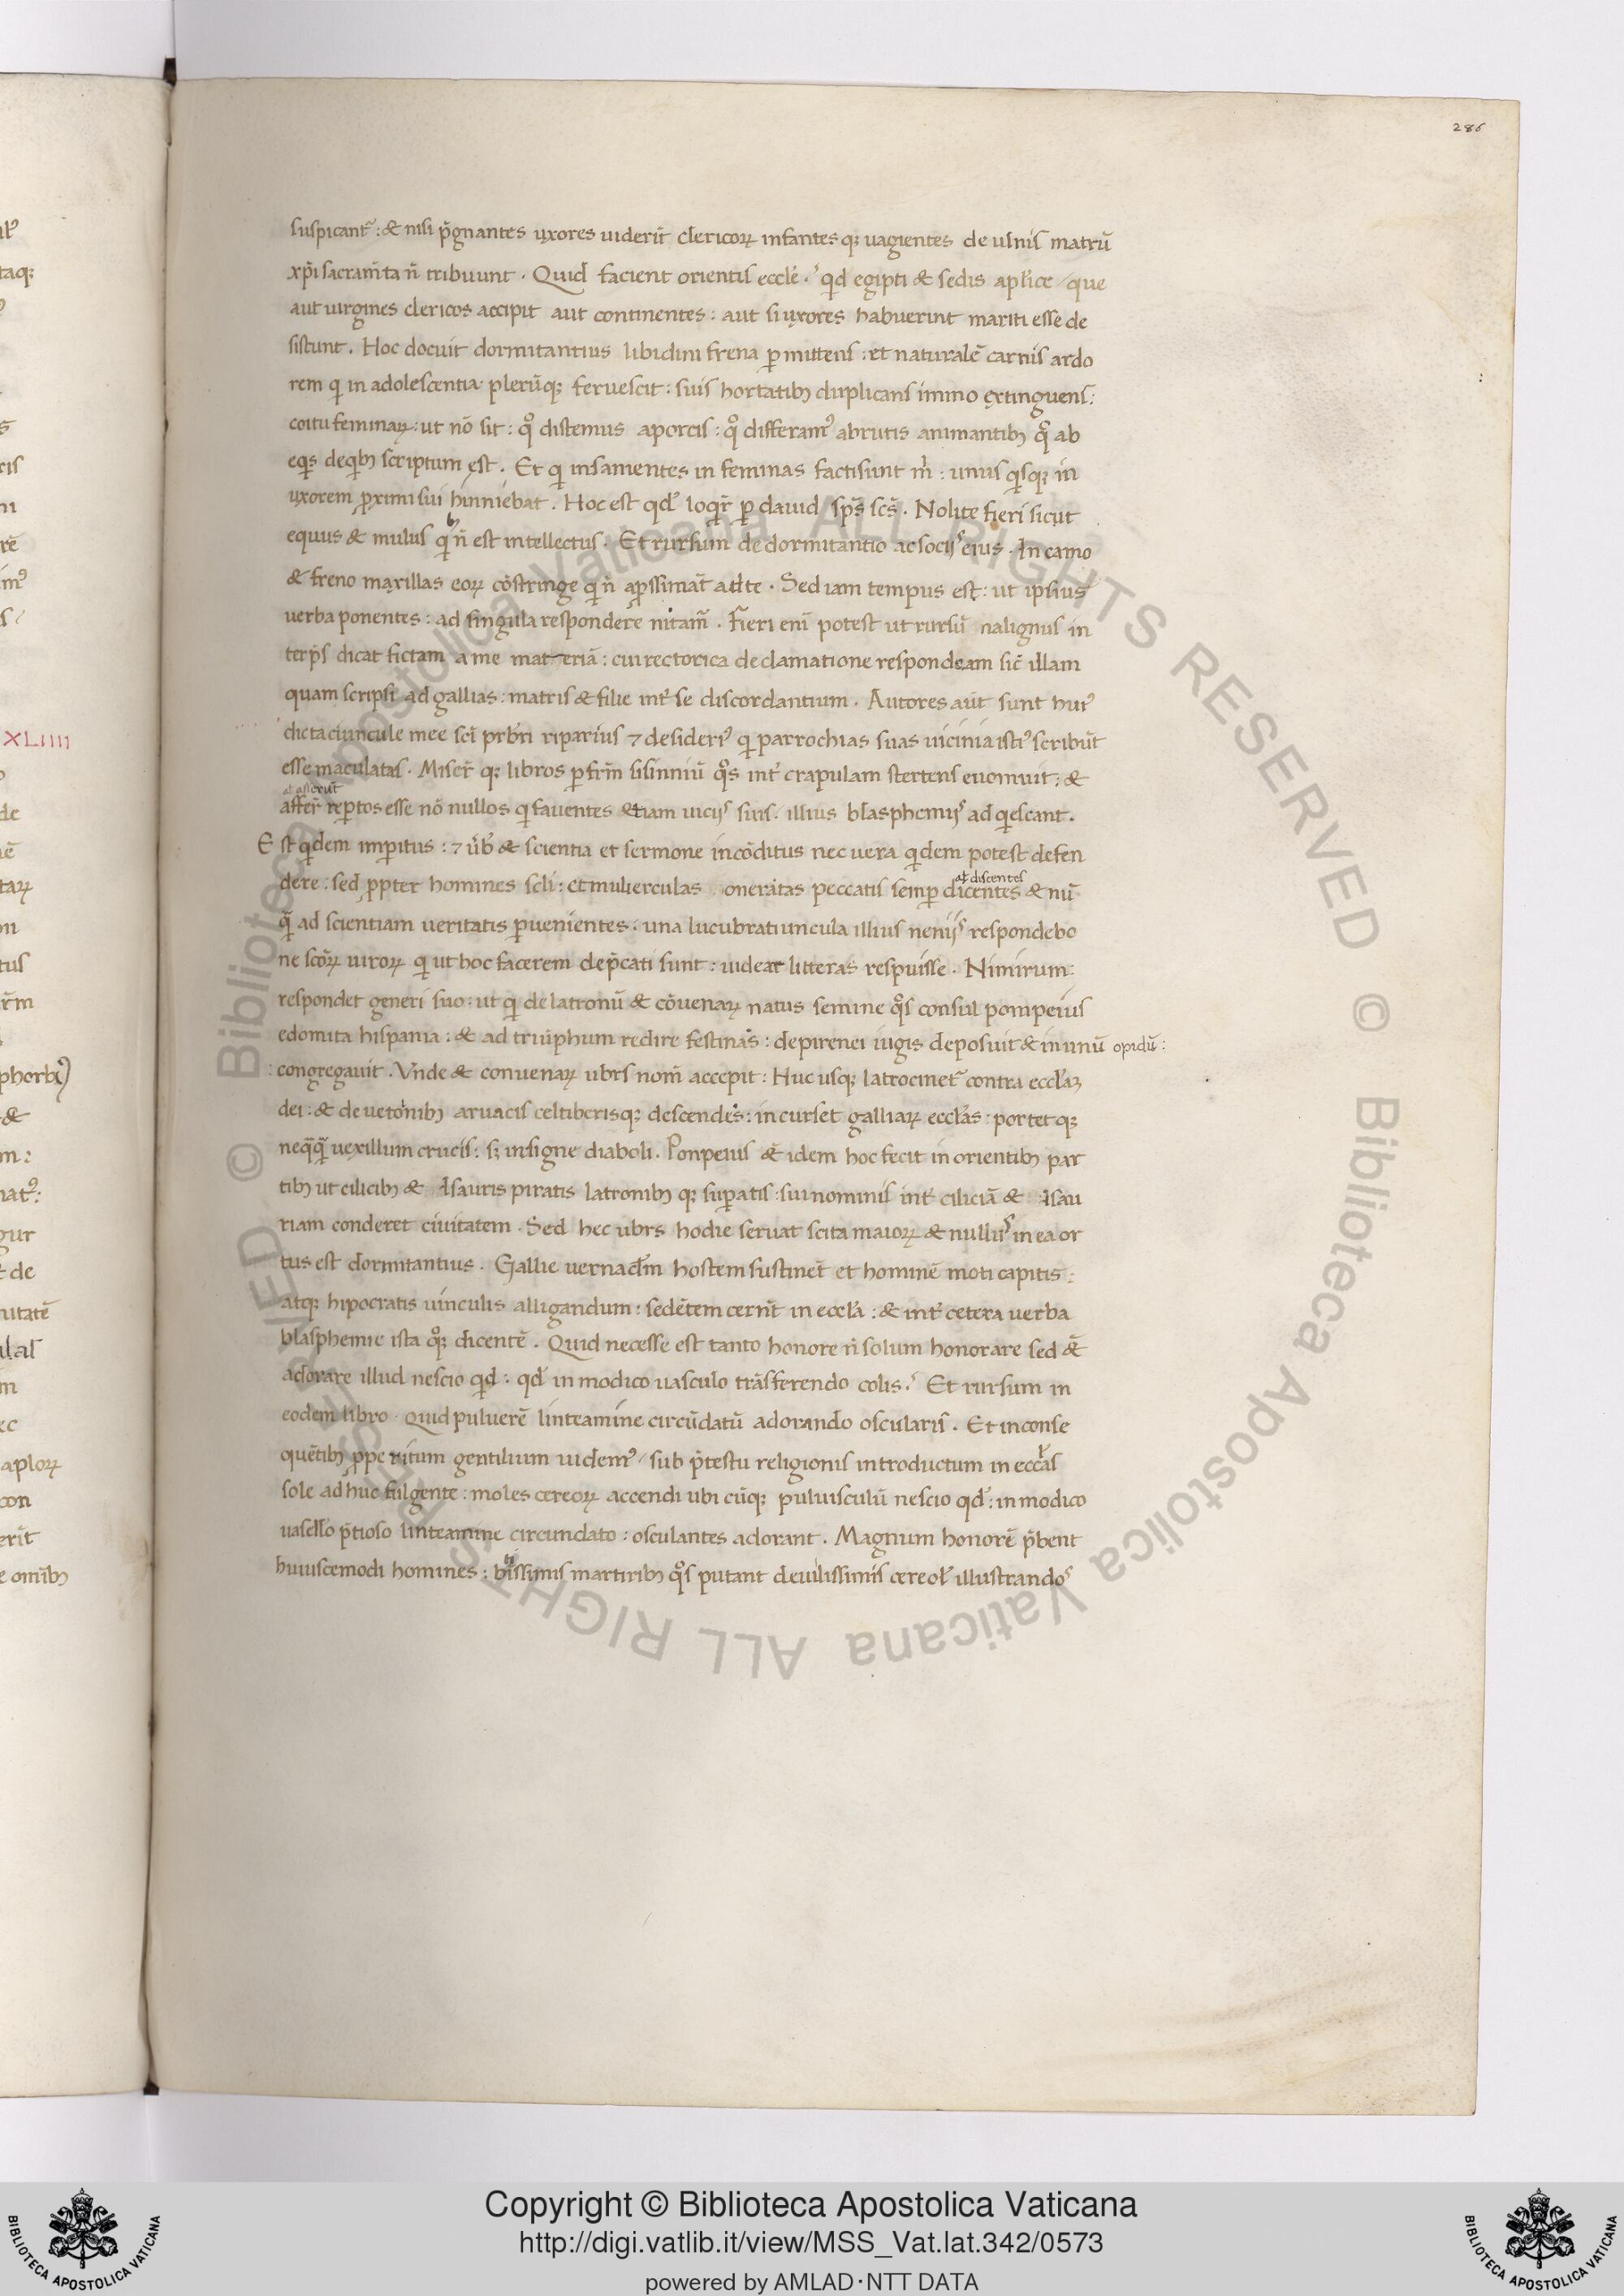 286
suspicant᷑ : & nisi p̄gnantes uxores uiderīt clericoꝝ infantesqꝫ uagientes de ulnis matrū
xp̄i sacram̄ta n̄ tribuunt . Quid facient orientis eccl̄e . qͥd egipti & sedis aplice / que
aut uirgines clericos accipit aut continentes : aut si uxores habuerint mariti esse de
sistunt . Hoc docuit dormitantius libidini frena ꝑmittens : et naturalē carnis ardo
rem qͥ in adolescentia plerūqꝫ feruescit : suis hortatibꝫ duplicans immo extinguens :
coitu feminaꝝ : ut nō sit : qͦ distemus aporcis : qͦ differamꝰ abrutis animantibꝫ qͦ ab
eqͥs deqͥbꝫ scriptum est . Et qͥ insanientes in feminas facti sunt m̄ : unus qͥsqꝫ in
uxorem ꝓximi sui hinniebat . Hoc est qd̛ loqͥr̄ ꝑ dauid sp̄s sc̄s . Nolite fieri sicut
equus & mulus qͥbꝫ n̄ est intellectus . Et rursum de dormitantio ac socijs eius . In camo
& freno maxillas eoꝝ cōstringe qͥ n̄ aꝓssimāt adte . Sed iam tempus est : ut ipsius
uerba ponentes : ad singula respondere nitam̄ . Fieri enī potest ut rursū nalignus in
terp̄s dicat fictam a me materiā : cui rectorica declamatione respondeam sic̄ illam
quam scripsi ad gallias : matris & filie int̄ se discordantium . Autores aūt sunt huiꝰ
dictaciuncule mee sc̄i prb̄ri riparius ⁊ desideriꝰ qͥ parrochias suas uicinia istiꝰ scribūt
esse maculatas . Miser̄qꝫ libros ꝑ fr̄m sisinniū qͦs int̄ crapulam stertens euomuit : &
at̄ asserūt
affer̄ reꝑtos esse nō nullos qͥ fauentes etiam uicijs suis . illius blasphemijs adqͥescant .
Est qͥdem imꝑitus : ⁊ ūb̛ & scientia et sermone incōditus nec uera qͥdem potest defen
at̄ discentes
dere : sed ꝓpter homines scl̄i : et mulierculas oneratas peccatis semꝑ dicentes & nū
qͣ̄ ad scientiam ueritatis ꝑuenientes : una lucubratiuncula illius nenijs respondebo
ne sc̄oꝝ uiroꝝ qͥ ut hoc facerem dep̄cati sunt : uidear litteras respuisse . Nimirum :
respondet generi suo : ut qͥ de latronū & cōuenaꝝ natus semine qͦs consul pompeius
edomita hispania : & ad triūphum redire festinās : de pirenei iugis deposuit & in unū opidū :
congregauit . Vnde & conuenaꝝ ubrs nom̄ accepit : Huc usqꝫ latrocinet᷑ contra eccl̄aꝫ
dei : & de uetōibꝫ aruacis celtiberisqꝫ descendēs : incurset galliaꝝ eccl̄as : portetqꝫ
neqͣqͣ̄ uexillum crucis : sꝫ insigne diaboli . Ponpeius &̄ idem hoc fecit in orientibꝫ par
tibꝫ ut cilicibꝫ & Isauris piratis latronibꝫqꝫ suꝑatis : sui nominis int̄ ciliciā & Isau
riam conderet ciuitatem . Sed hec ubrs hodie seruat scita maioꝝ & nullus in ea or
tus est dormitantius . Gallie uernacl̄m hostem sustinēt et hominē moti capitis :
atqꝫ hipocratis uinculis alligandum : sedētem cernūt in eccl̄a : & int̄ cetera uerba
blasphemie ista qͦꝫ dicentē . Quid necesse est tanto honore n̄ solum honorare sed &̄
adorare illud nescio qͥd : qd̛ in modico uasculo trāsferendo colis . Et rursum in
eodem libro . Quid puluerē linteamine circūdatū adorando oscularis . Et in conse
quētibꝫ ꝓpe ritum gentilium uidemꝰ / sub p̄testu religionis introductum in eccl̄as
sole ad huc fulgente : moles cereoꝝ accendi ubi cūqꝫ puluisculū nescio qd̛ : in modico
uasello p̄tioso linteamine circundato : osculantes adorant . Magnum honorē p̄bent
huiuscemodi homines : btīssimis martiribꝫ qͦs putant de uilissimis cereol̛ illustrandos
XLIIII
Copyright © Biblioteca Apostolica Vaticana
http://digi.vatlib.it/view/MSS_Vat.lat.342/0573
powered by AMLAD·NTT DATA
BIBLIOTECA APOSTOLICA VATICANA
BIBLIOTECA APOSTOLICA VATICANA